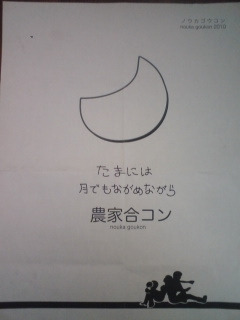 ノウカゴウコン
nouka goukon 2010
たまには
月でもながめながら
農家合コン
nouka goukon